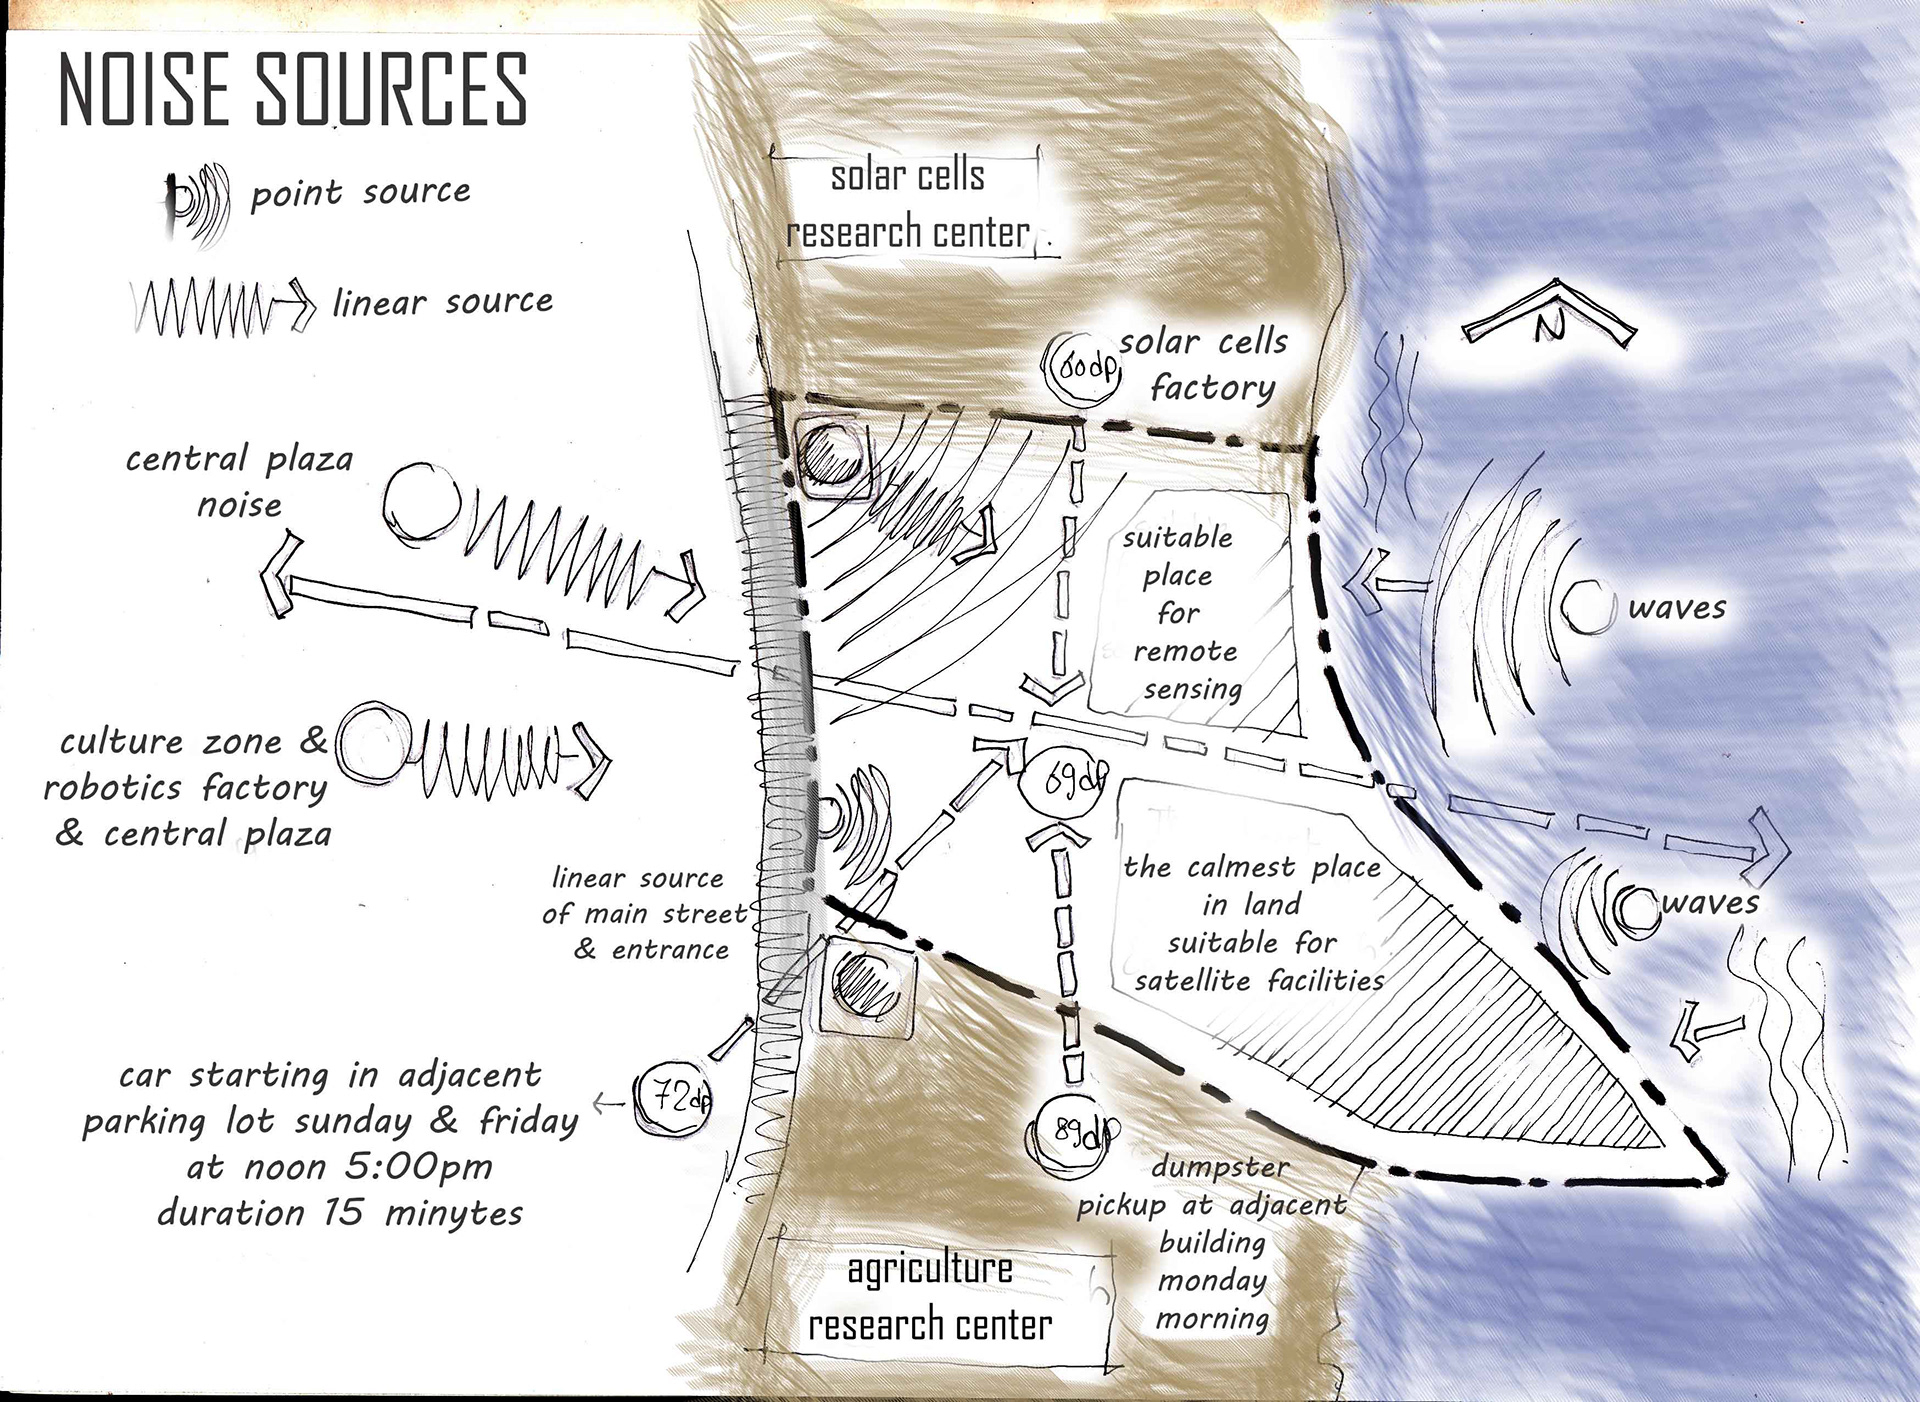 NOISE SOURCES
point source
linear source
solar cells
research center
solar cells
factory
60dp
N
central plaza
noise
suitable
place
for
remote
sensing
waves
culture zone &
robotics factory
& central plaza
69dp
linear source
of main street
& entrance
the calmest place
in land
suitable for
satellite facilities
waves
car starting in adjacent
parking lot sunday & friday
at noon 5:00pm
duration 15 minytes
72dp
89dp
dumpster
pickup at adjacent
building
monday
morning
agriculture
research center